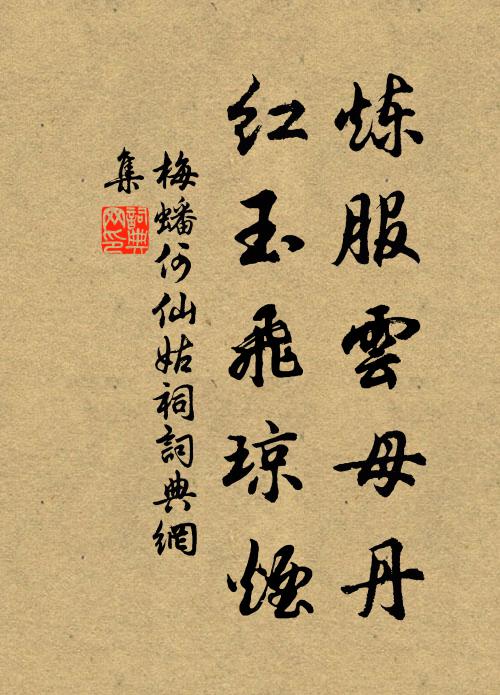 炼服雲母丹
红玉飛琼煙
梅蟠何仙姑祠詞典網
集
詞典網印